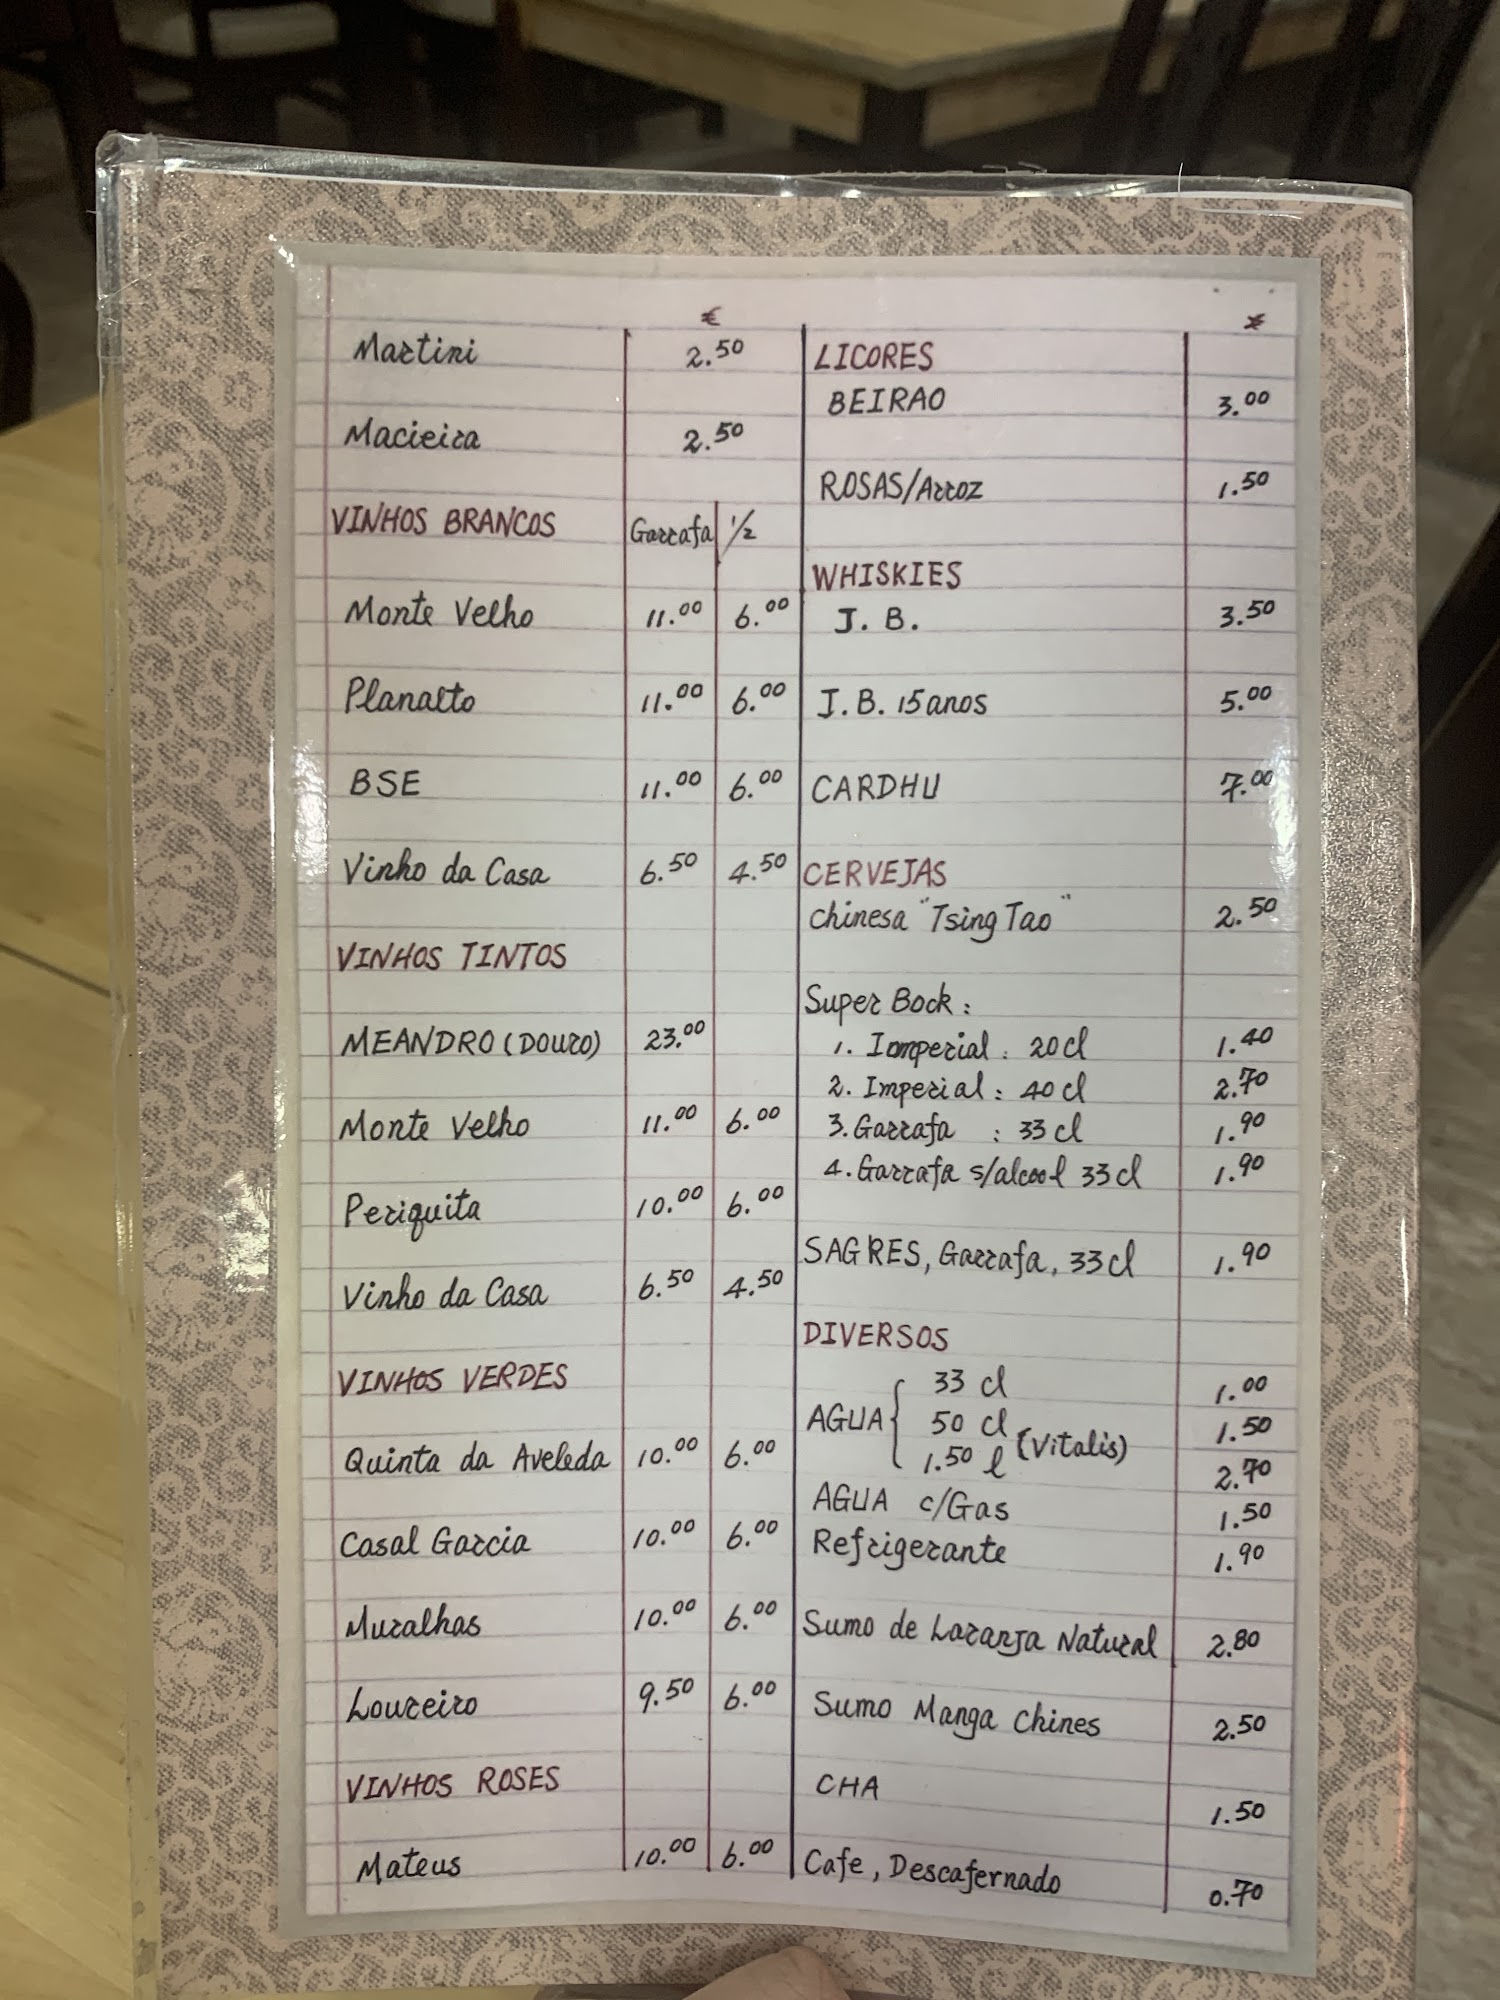 €
Martini 2.50
Macieira 2.50
VINHOS BRANCOS Garrafa 1/2
Monte Velho 11.00 6.00
Planalto 11.00 6.00
BSE 11.00 6.00
Vinho da Casa 6.50 4.50
VINHOS TINTOS
MEANDRO (DOURO) 23.00
Monte Velho 11.00 6.00
Periquita 10.00 6.00
Vinho da Casa 6.50 4.50
VINHOS VERDES
Quinta da Aveleda 10.00 6.00
Casal Garcia 10.00 6.00
Muralhas 10.00 6.00
Loureiro 9.50 6.00
VINHOS ROSES
Mateus 10.00 6.00
€
LICORES
BEIRAO 3.00
ROSAS/Arroz 1.50
WHISKIES
J. B. 3.50
J. B. 15 anos 5.00
CARDHU 7.00
CERVEJAS
chinesa "Tsing Tao" 2.50
Super Bock :
1. Iomperial : 20 cl 1.40
2. Imperial : 40 cl 2.70
3. Garrafa : 33 cl 1.90
4. Garrafa s/alcool 33 cl 1.90
SAGRES, Garrafa, 33 cl 1.90
DIVERSOS
33 cl 1.00
AGUA { 50 cl (Vitalis) 1.50
1.50 l 2.70
AGUA c/Gas 1.50
Refrigerante 1.90
Sumo de Laranja Natural 2.80
Sumo Manga Chines 2.50
CHA 1.50
Cafe, Descafernado 0.70